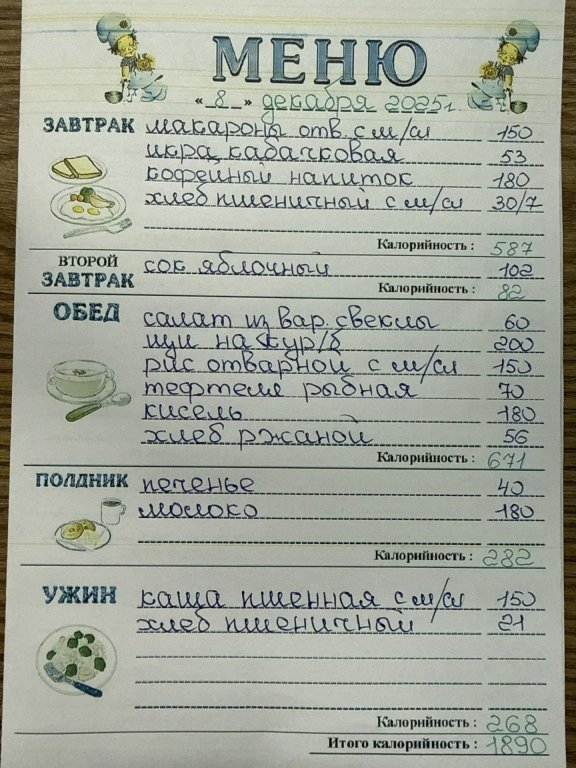 МЕНЮ
« 8 » декабря 2025г.
ЗАВТРАК
макароны отв. с м/сл 150
икра кабачковая 53
кофейный напиток 180
хлеб пшеничный с м/сл 30/7
Калорийность : 587
ВТОРОЙ
ЗАВТРАК
сок яблочный 102
Калорийность : 82
ОБЕД
салат из вар. свеклы 60
щи на кур/б 200
рис отварной с м/сл 150
тефтели рыбная 70
кисель 180
хлеб ржаной 56
Калорийность : 671
ПОЛДНИК
печенье 40
молоко 180
Калорийность : 282
УЖИН
каша пшенная с м/сл 150
хлеб пшеничный 21
Калорийность : 268
Итого калорийность : 1890